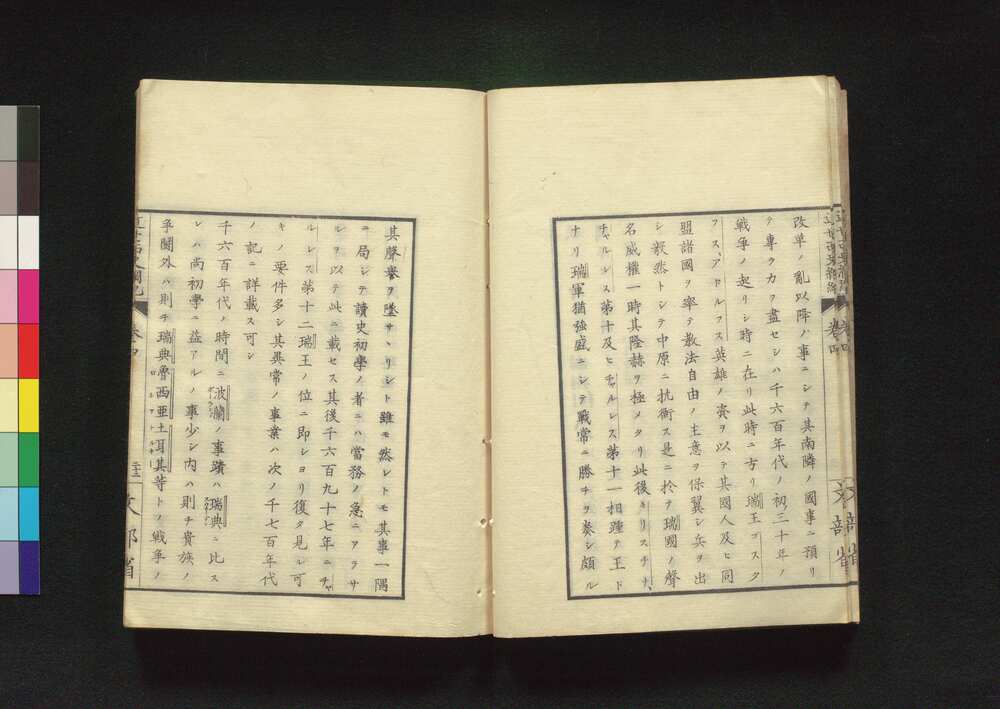 改革ノ亂以降ハ事ニシテ其南隣ノ國事ニ預リ
テ專ラ力ヲ盡セシハ千六百年代ノ初三十年ノ
戰爭ノ起リシ時ニ在リ此時ニ方リ瑞王ゴスタ
フス、アドルフス英雄ノ資ヲ以テ其國人及ヒ同
盟諸國ヲ率テ教法自由ノ主意ヲ保翼シ兵ヲ出
シ毅然トシテ中原ニ抗衡ス是ニ於テ瑞國ノ聲
名威權一時其隆赫ヲ極メタリ此後キリスチナ、
チャルレス第十及ヒチャルレス第十一相踵テ王ト
ナリ瑞軍猶強盛ニシテ戰常ニ勝チヲ奏シ頗ル
其聲譽ヲ墜サヽリシト雖モ然レトモ其事一隅
ニ局シテ讀史初學ノ者ニハ當務ノ急ニアラサ
レヲ以テ此ニ載セス其後千六百九十七年ニチャ
ルレス第十二瑞王ノ位ニ即シヨリ復タ見ル可
キノ要件多シ其異常ノ事業ハ次ノ千七百年代
ノ記ニ詳載ス可シ
千六百年代ノ時間ニ波蘭ノ事蹟ハ瑞典ニ比ス
レハ尚初學ニ益アルノ事少シ内ハ則チ貴族ノ
爭鬩外ハ則チ瑞典魯西亜土耳其等トノ戰爭ノ
卷四
文部省